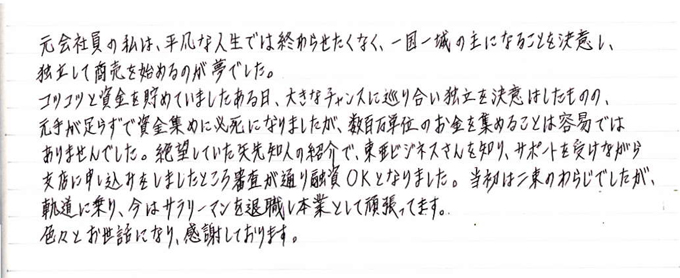 元会社員の私は、平凡な人生では終わらせたくなく、一国一城の主になることを決意し、
独立して商売を始めるのが夢でした。
コツコツと資金を貯めていましたある日、大きなチャンスに巡り合い独立を決意はしたものの、
元手が足らずで資金集めに必死になりましたが、数百万単位のお金を集めることは容易では
ありませんでした。絶望していた矢先知人の紹介で、東亜ビジネスさんを知り、サポートを受けながら
支店に申し込みをしましたところ審査が通り融資OKとなりました。当初は二束のわらじでしたが、
軌道に乗り、今はサラリーマンを退職し本業として頑張ってます。
色々とお世話になり、感謝しております。